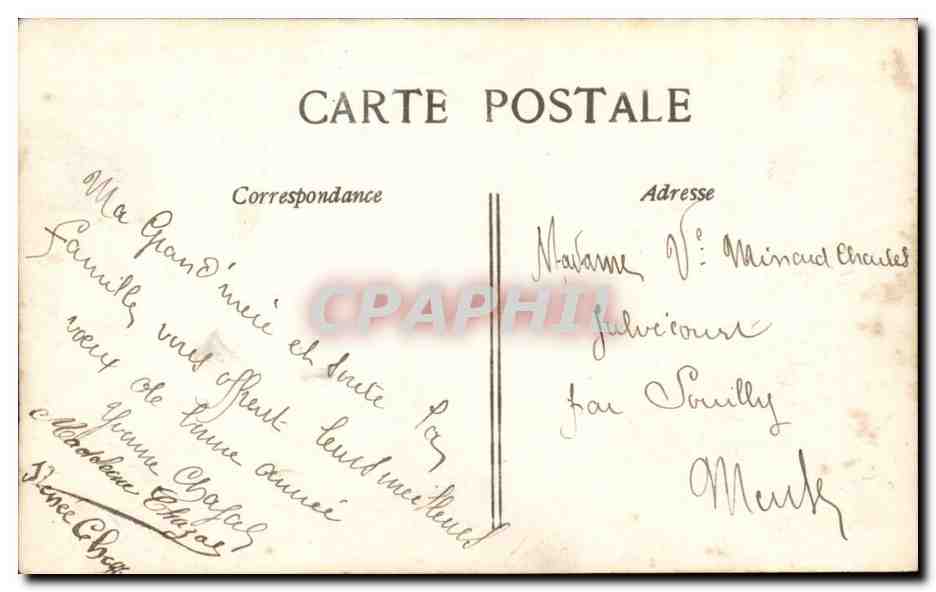 CARTE POSTALE
Correspondance
Adresse
Ma Grand'mère et toute la
famille vous offrent leurs meilleurs
vœux de bonne année
Yvonne Chazal
Madeleine Chazal
Renée Chaz
Madame Vᵉ Minaud Charles
Julvécourt
par Souilly
Meuse
CPAPHIL